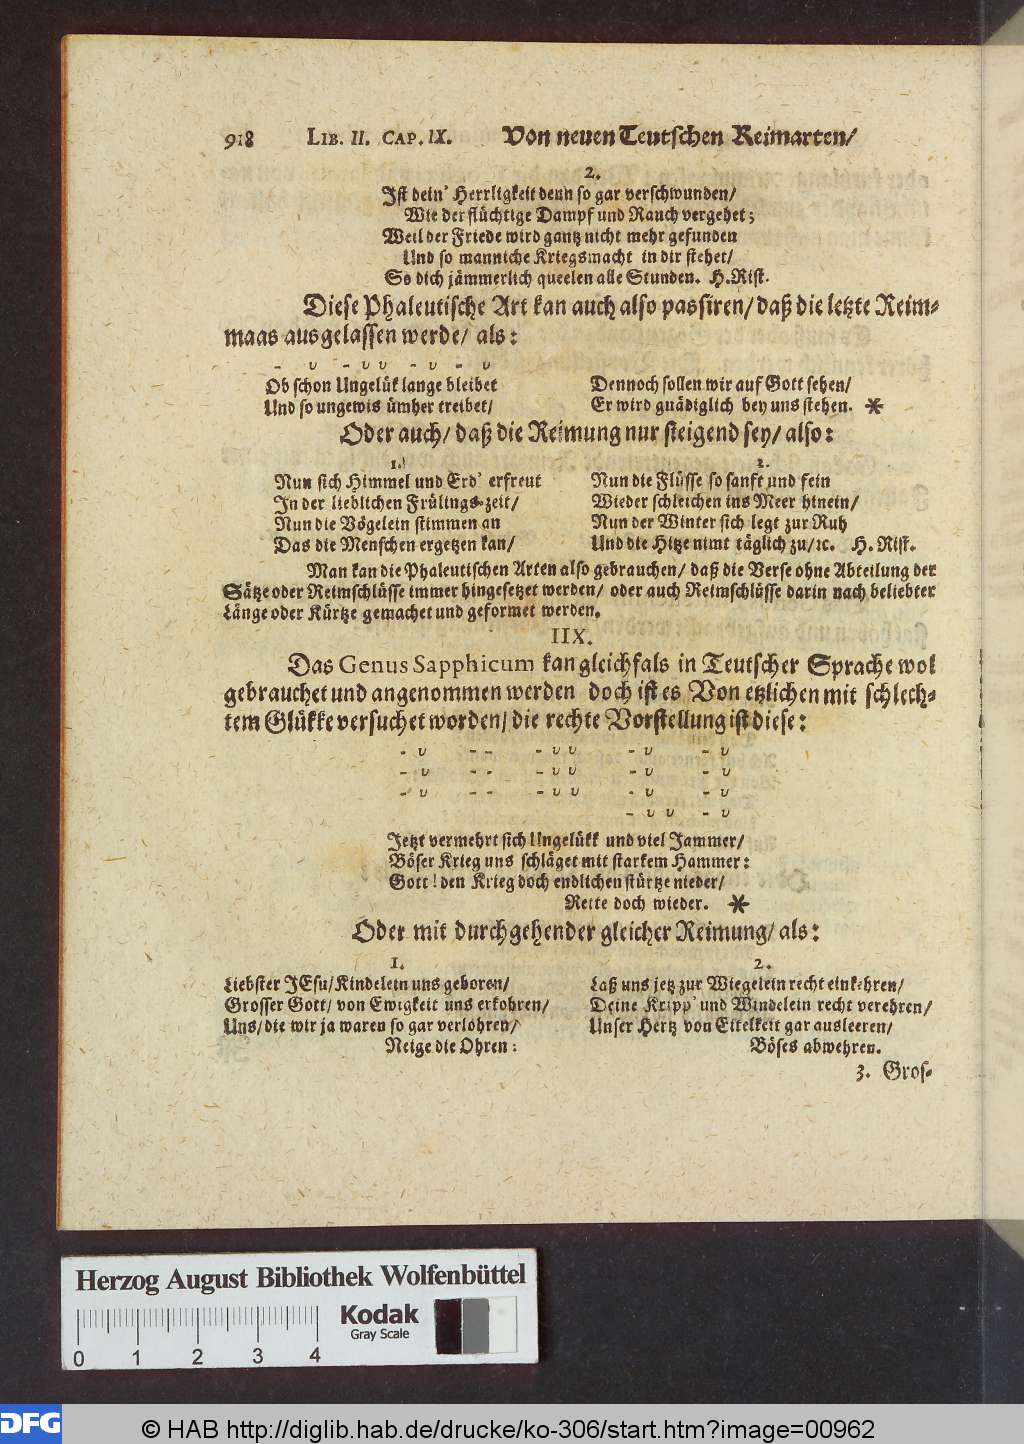 918 LIB. II. CAP. IX. Von neuen Teutschen Reimarten/
2.
Ist dein' Herrligkeit denn so gar verschwunden/
Wie der flüchtige Dampf und Rauch vergehet;
Weil der Friede wird gantz nicht mehr gefunden
Und so manniche Kriegsmacht in dir stehet/
So dich jämmerlich queelen alle Stunden. H. Rist.
Diese Phaleutische Art kan auch also passiren/ daß die letzte Reim-
maas ausgelassen werde/ als:
- υ - υ υ - υ - υ
Ob schon Ungelük lange bleibet
Und so ungewis ümher treibet/
Dennoch sollen wir auf Gott sehen/
Er wird gnädiglich bey uns stehen. *
Oder auch/ daß die Reimung nur steigend sey/ also:
1.
Nun sich Himmel und Erd' erfreut
In der lieblichen Frülings-zeit/
Nun die Vögelein stimmen an
Das die Menschen ergetzen kan/
2.
Nun die Flüsse so sanft und fein
Wieder schleichen ins Meer hinein/
Nun der Winter sich legt zur Ruh
Und die Hitze nimt täglich zu/ ꝛc. H. Rist.
Man kan die Phaleutischen Arten also gebrauchen/ daß die Verse ohne Abteilung der
Sätze oder Reimschlüsse immer hingesetzet werden/ oder auch Reimschlüsse darin nach beliebter
Länge oder Kürtze gemachet und geformet werden.
IIX.
Das Genus Sapphicum kan gleichfals in Teutscher Sprache wol
gebrauchet und angenommen werden doch ist es Von etzlichen mit schlech-
tem Glükke versuchet worden/ die rechte Vorstellung ist diese:
- υ - - - υ υ - υ - υ
- υ - - - υ υ - υ - υ
- υ - - - υ υ - υ - υ
- υ υ - υ
Jetzt vermehrt sich Ungelükk und viel Jammer/
Böser Krieg uns schläget mit starkem Hammer:
Gott! den Krieg doch endlichen stürtze nieder/
Rette doch wieder. *
Oder mit durchgehender gleicher Reimung/ als:
1.
Liebster JEsu/ Kindelein uns geboren/
Grosser Gott/ von Ewigkeit uns erkohren/
Uns/ die wir ja waren so gar verlohren/
Neige die Ohren:
2.
Laß uns jetz zur Wiegelein recht einkehren/
Deine Kripp' und Windelein recht verehren/
Unser Hertz von Eitelkeit gar ausleeren/
Böses abwehren.
3. Gros-
Herzog August Bibliothek Wolfenbüttel
Kodak
Gray Scale
0 1 2 3 4
DFG © HAB http://diglib.hab.de/drucke/ko-306/start.htm?image=00962